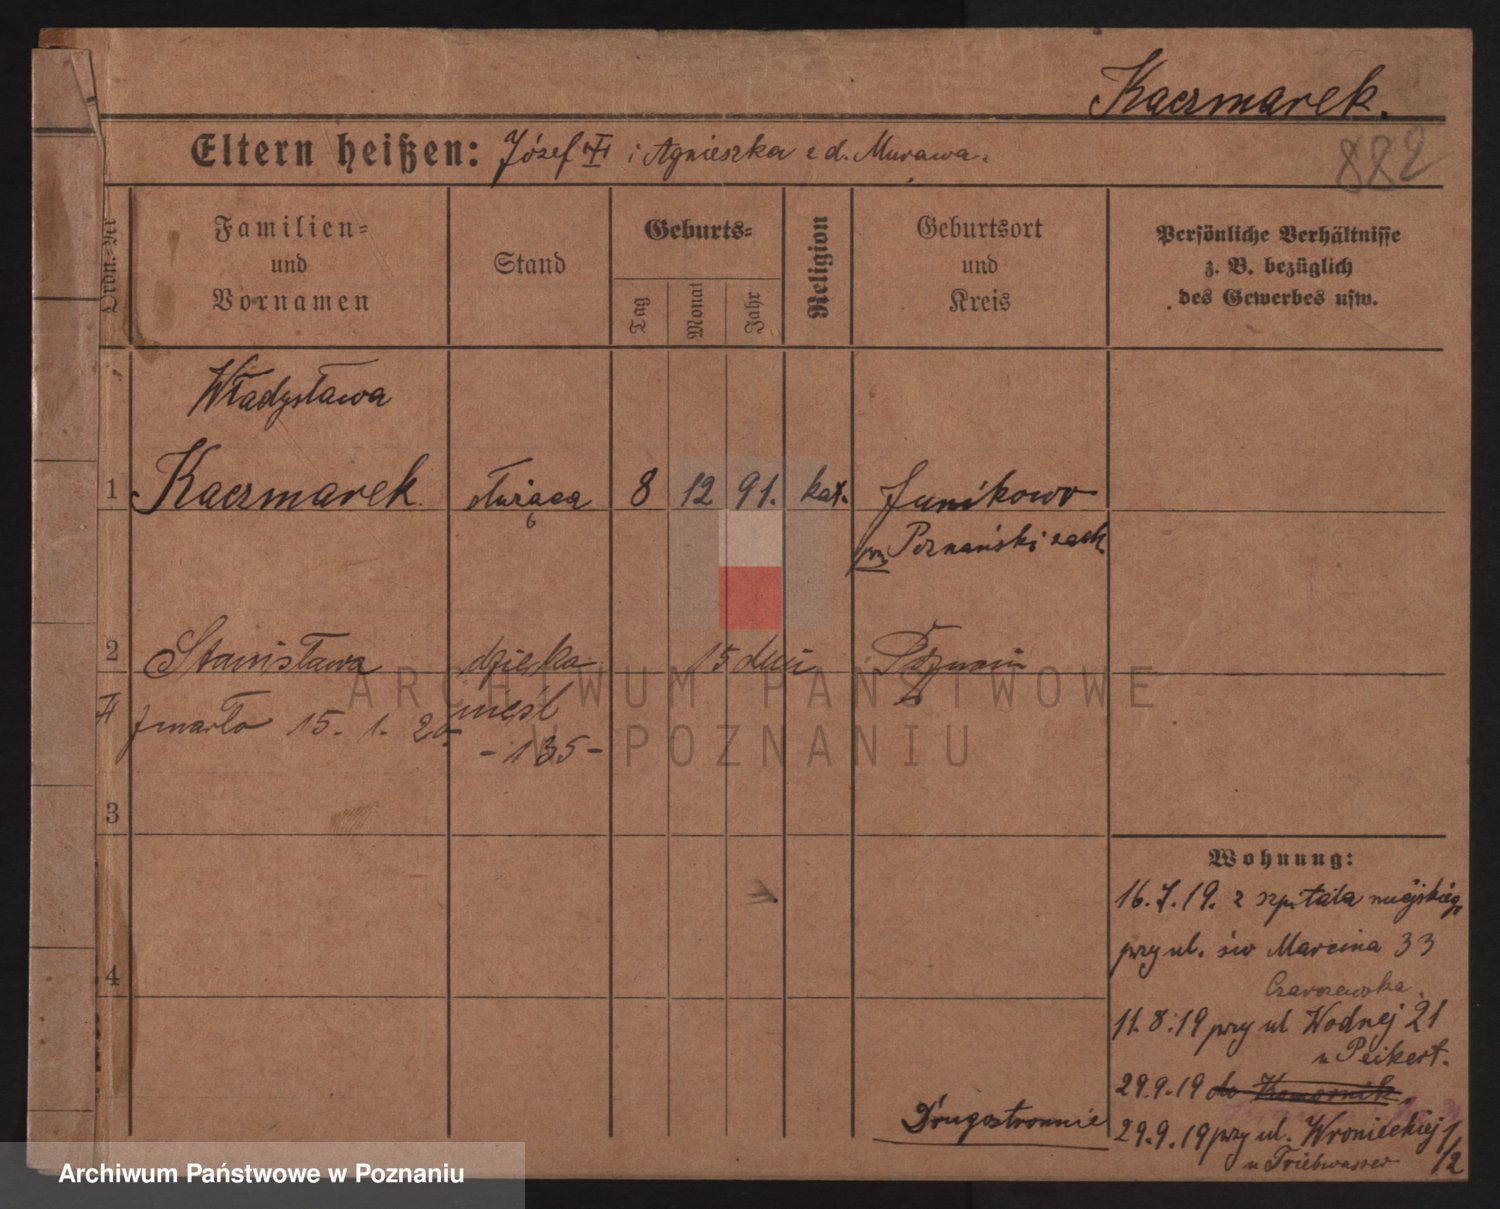 Kaczmarek.
882
Eltern heißen: Józef † i Agnieszka z d. Murawa.
Ordn.-Nr
Familien=
und
Vornamen
Stand
Geburts=
Tag
Monat
Jahr
Religion
Geburtsort
und
Kreis
Persönliche Verhältnisse
z. B. bezüglich
des Gewerbes usw.
Władysława
1 Kaczmarek. służąca 8 12 91. kat. Junikowo
Poznański zach
2 Stanisława dziecko 15 dni Poznań
zmarło 15. 1. 20 nieśl
- 135 -
3
4
Wohnung:
16.7.19. z szpitala miejskieg
przy ul. św Marcina 33
11.8.19 przy ul Wodnej 21
u Peikert.
29.9.19 do Komornik
29.9.19 przy ul. Wronieckiej 1/2
u Triebwasser
Drugostronnie
ARCHIWUM PAŃSTWOWE
W POZNANIU
Archiwum Państwowe w Poznaniu